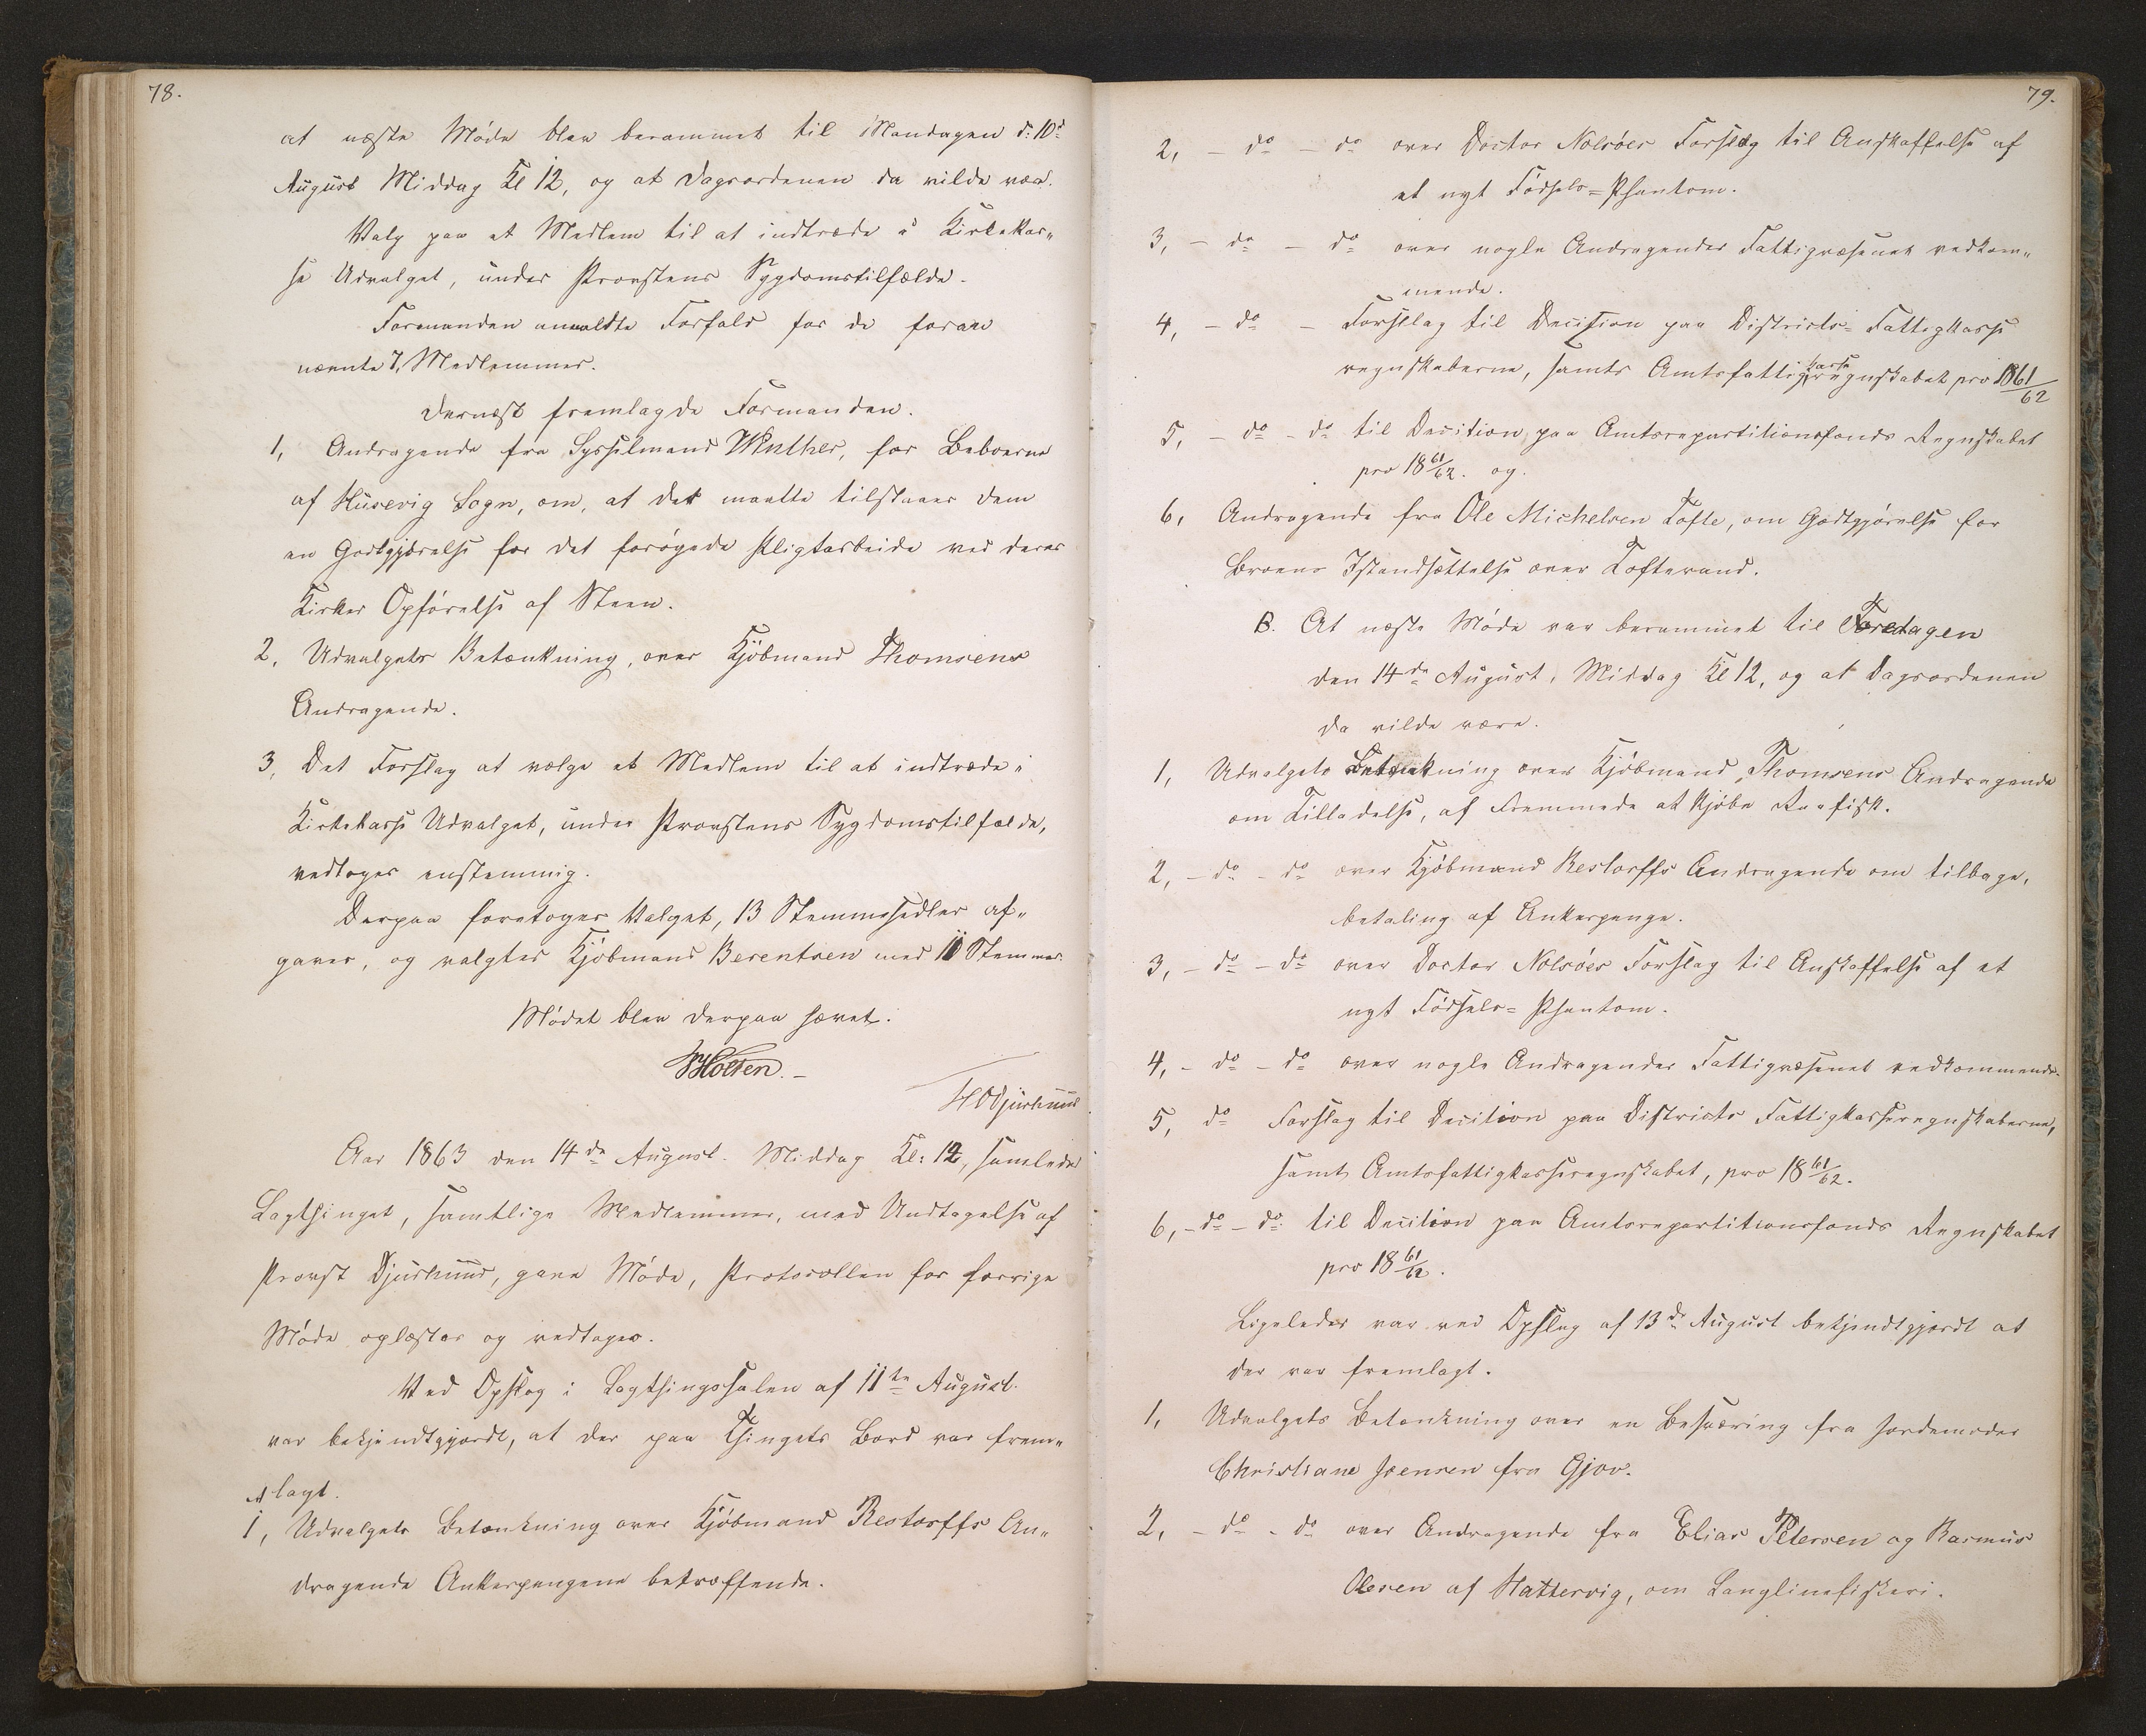 78.
at næste Møde blev berammet til Mandagen d: 10d
August Middag Kl 12, og at Dagsordenen da vilde være.
Valg paa et Medlem til at indtræde i Kirkekas„
se Udvalget, under Provstens Sygdomstilfælde.
Formanden anmeldte Forfald for de foran
nævnte 7, Medlemmer.
Dernæst fremlagde Formanden.
1, Andragende fra Sysselmand Winther, for Beboerne
af Husevig Sogn, om, at det maatte tilstaaes dem
en Godtgjørelse for det forøgede Pligtarbeide ved deres
Kirkes Opførelse af Steen.
2, Udvalgets Betænkning, over Kjøbmand Thomsens
Andragende.
3, Det Forslag at vælge et Medlem til at indtræde i
Kirkekasse Udvalget, under Provstens Sygdomstilfælde,
vedtoges enstemmig.
Derpaa foretoges Valget, 13 Stemmesedler af„
gaves, og valgtes Kjøbmand Berentsen med 11 Stemmer.
Mødet blev derpaa hævet.
Holten.
H O Djurhuus
Aar 1863 den 14de August. Middag Kl: 12, samledes
Lagthinget, samtlige Medlemmer, med Undtagelse af
Provst Djurhuus, gave Møde, Protocollen for forrige
Møde oplæstes og vedtoges.
Ved Opslag i Lagthingssalen af 11te August.
var bekjendtgjordt, at der paa Thingets Bord var frem„
A lagt.
1, Udvalgets Betænkning over Kjøbmand Restorffs An„
dragende Ankerpengene betræffende.
79.
2, – do – do over Doctor Nolsøes Forslag til Anskaffelse af
et nyt Fødsels=Phantom.
3, – do – do over nogle Andragender Fattigvæsenet vedkom„
mende.
4, – do – Forslag til Decition paa Districts= Fattigkasse
regnskaberne, samts Amtsfattigkasseregnskabet pro 1861/62
5, – do – do til Decition paa Amtsrepartitionsfonds Regnskabet
pro 1861/62. og.
6, Andragende fra Ole Michelsen Tofte, om Godtgjørelse for
Broens Istandsættelse over Toftevand.
B. At næste Møde var berammet til Fredagen
den 14de August, Middag Kl 12, og at Dagsordenen
da vilde være.
1, Udvalgets Betænkning over Kjøbmand Thomsens Andragende
om Tilladelse, af Fremmede at kjøbe Raafisk.
2, – do – do over Kjøbmand Restorffs Andragende om tilbage,
betaling af Ankerpenge.
3, – do – do over Doctor Nolsøes Forslag til Anskaffelse af et
nyt Fødsels= Phantom.
4, – do – do over nogle Andragender Fattigvæsenet vedkommende.
5, do Forslag til Decition paa Districts Fattigkasseregnskaberne,
samt Amtsfattigkasseregnskabet, pro 1861/62.
6, – do – do til Decition paa Amtsrepartitionsfonds Regnskabet
pro 1861/62.
Ligeledes var ved Opslag af 13de August bekjendtgjordt at
der var fremlagt.
1, Udvalgets Betænkning over en Besværing fra Jordemoder
Christiane Joensen fra Gjov.
2, – do – do over Andragende fra Elias Petersen og Rasmus
Olesen af Hattervig, om Langlinefiskeri.